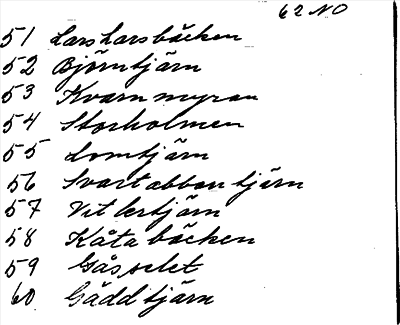 62 NO
51 Lars Larsbäcken
52 Björntjärn
53 Kvarnmyran
54 Storholmen
55 Lomtjärn
56 Svartabborrtjärn
57 Vitlertjärn
58 Kåtabäcken
59 Gåsselet
60 Gäddtjärn